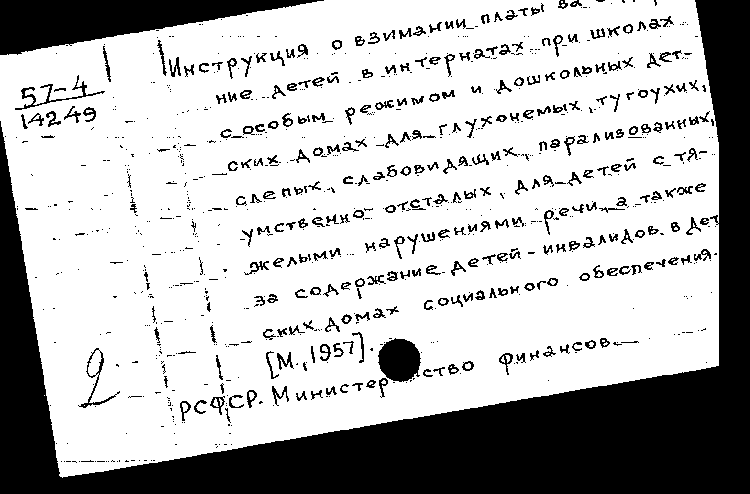 Инструкция о взимании платы за
57-4
14249
ние детей в интернатах при школах
с особым режимом и дошкольных дет-
ских домах для глухонемых, тугоухих,
слепых, слабовидящих, парализованных,
умственно отсталых, для детей с тя-
желыми нарушениями речи, а также
за содержание детей-инвалидов в дет
ских домах социального обеспечения.
[М., 1957].
2
РСФСР. Министерство финансов.